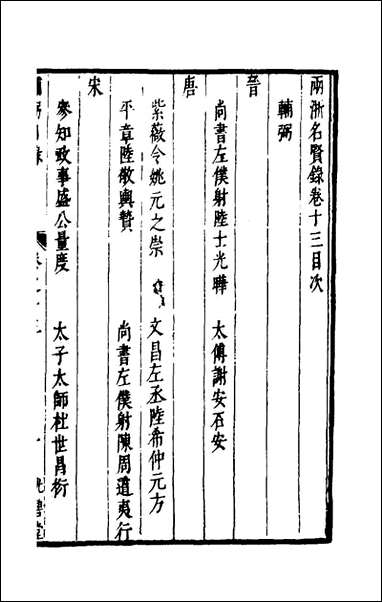 兩浙名賢錄卷十三目次
輔弼
晉
尚書左僕射陸士光曄　太傅謝安石安
唐
紫薇令姚元之崇　文昌左丞陸希仲元方
平章陸敬輿贄　尚書左僕射陳周道夷行
宋
參知政事盛公量度　太子太師杜世昌衍